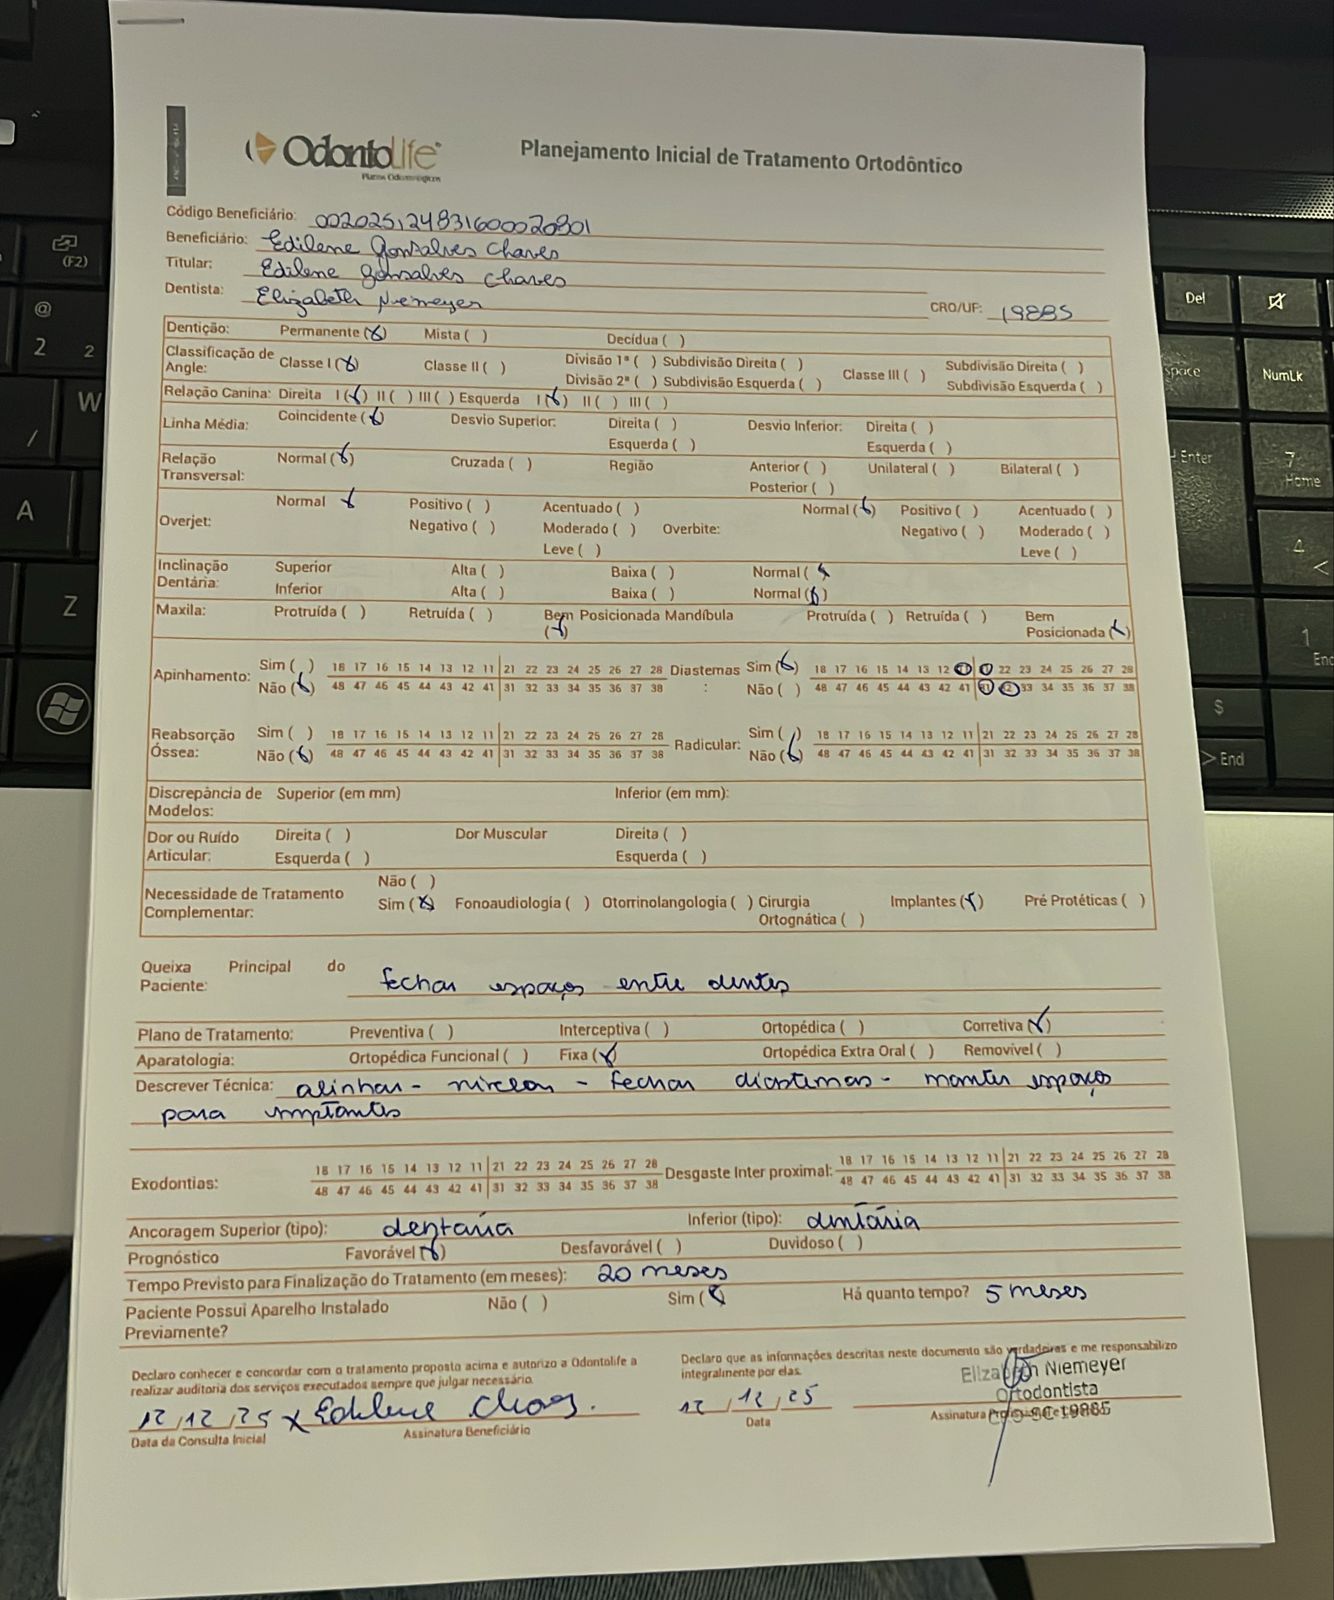 OdontoLife
Planos Odontológicos
Planejamento Inicial de Tratamento Ortodôntico
Código Beneficiário: 002025124831600020801
Beneficiário: Edilene Gonsalves Chaves
Titular: Edilene Gonsalves Chaves
Dentista: Elizabeth Niemeyer CRO/UF: 19885
Dentição: Permanente (x) Mista ( ) Decídua ( )
Classificação de Angle: Classe I (x) Classe II ( ) Divisão 1ª ( ) Subdivisão Direita ( ) Classe III ( ) Subdivisão Direita ( )
Divisão 2ª ( ) Subdivisão Esquerda ( ) Subdivisão Esquerda ( )
Relação Canina: Direita I (x) II ( ) III ( ) Esquerda I (x) II ( ) III ( )
Linha Média: Coincidente (x) Desvio Superior: Direita ( ) Desvio Inferior: Direita ( )
Esquerda ( ) Esquerda ( )
Relação Transversal: Normal (x) Cruzada ( ) Região Anterior ( ) Unilateral ( ) Bilateral ( )
Posterior ( )
Overjet: Normal x Positivo ( ) Acentuado ( ) Overbite: Normal (x) Positivo ( ) Acentuado ( )
Negativo ( ) Moderado ( ) Negativo ( ) Moderado ( )
Leve ( ) Leve ( )
Inclinação Dentária: Superior Alta ( ) Baixa ( ) Normal (x
Inferior Alta ( ) Baixa ( ) Normal (x)
Maxila: Protruída ( ) Retruída ( ) Bem Posicionada (x) Mandíbula Protruída ( ) Retruída ( ) Bem Posicionada (x)
Apinhamento: Sim ( ) 18 17 16 15 14 13 12 11 21 22 23 24 25 26 27 28 Diastemas: Sim (x) 18 17 16 15 14 13 12 11 21 22 23 24 25 26 27 28
Não (x) 48 47 46 45 44 43 42 41 31 32 33 34 35 36 37 38 Não ( ) 48 47 46 45 44 43 42 41 31 32 33 34 35 36 37 38
Reabsorção Óssea: Sim ( ) 18 17 16 15 14 13 12 11 21 22 23 24 25 26 27 28 Radicular: Sim ( ) 18 17 16 15 14 13 12 11 21 22 23 24 25 26 27 28
Não (x) 48 47 46 45 44 43 42 41 31 32 33 34 35 36 37 38 Não (x) 48 47 46 45 44 43 42 41 31 32 33 34 35 36 37 38
Discrepância de Modelos: Superior (em mm) Inferior (em mm):
Dor ou Ruído Articular: Direita ( ) Dor Muscular Direita ( )
Esquerda ( ) Esquerda ( )
Necessidade de Tratamento Complementar: Não ( )
Sim (x) Fonoaudiologia ( ) Otorrinolangologia ( ) Cirurgia Ortognática ( ) Implantes (x) Pré Protéticas ( )
Queixa Principal do Paciente: fechar espaços entre dentes
Plano de Tratamento: Preventiva ( ) Interceptiva ( ) Ortopédica ( ) Corretiva (x)
Aparatologia: Ortopédica Funcional ( ) Fixa (x) Ortopédica Extra Oral ( ) Removível ( )
Descrever Técnica: alinhar - nivelar - fechar diastemas - manter espaços
para implantes
Exodontias: 18 17 16 15 14 13 12 11 21 22 23 24 25 26 27 28 Desgaste Inter proximal: 18 17 16 15 14 13 12 11 21 22 23 24 25 26 27 28
48 47 46 45 44 43 42 41 31 32 33 34 35 36 37 38 48 47 46 45 44 43 42 41 31 32 33 34 35 36 37 38
Ancoragem Superior (tipo): dentaria Inferior (tipo): dentária
Prognóstico Favorável (x) Desfavorável ( ) Duvidoso ( )
Tempo Previsto para Finalização do Tratamento (em meses): 20 meses
Paciente Possui Aparelho Instalado Previamente? Não ( ) Sim (x Há quanto tempo? 5 meses
Declaro conhecer e concordar com o tratamento proposto acima e autorizo a Odontolife a
realizar auditoria dos serviços executados sempre que julgar necessário.
12/12/25 x Edilene Chaves.
Data da Consulta Inicial Assinatura Beneficiário
Declaro que as informações descritas neste documento são verdadeiras e me responsabilizo
integralmente por elas.
12/12/25
Data
Elizabeth Niemeyer
Ortodontista
CRO SC 19885
(F2)
@
2 2
W
/
A
Z
Del
space
NumLk
Enter
7
Home
4
<
1
End
$
> End